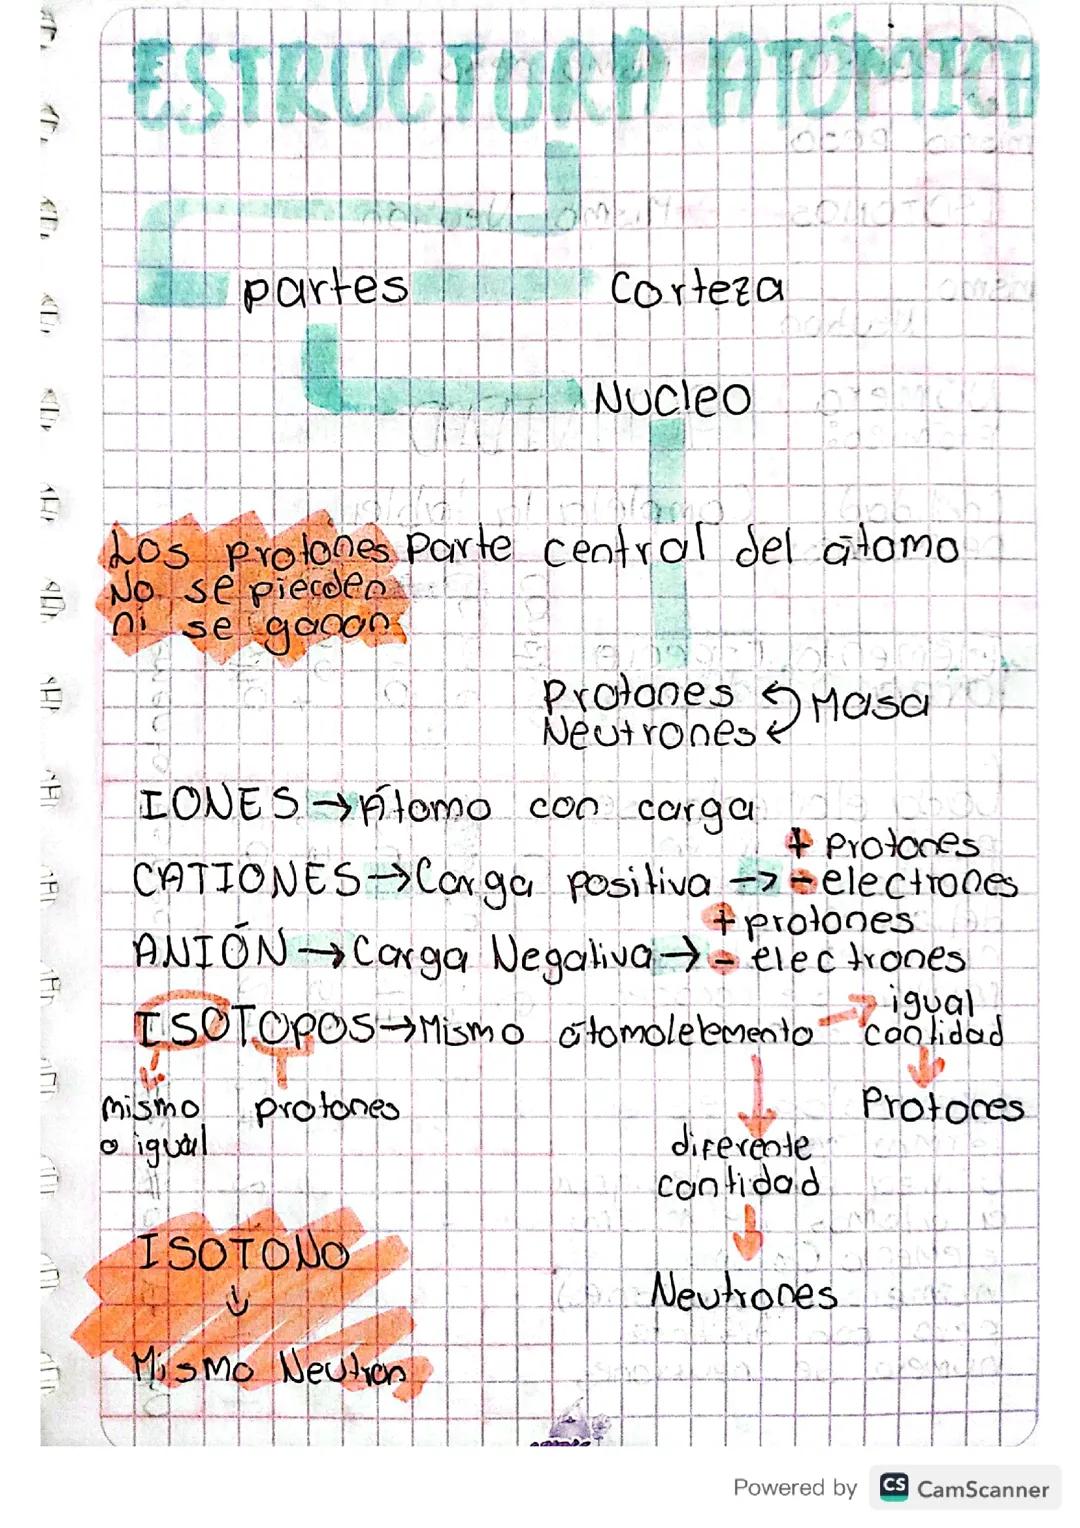 ESTRUCTURA ATÓMICA
partes Corteza
Nucleo
Los protones Parte central del átomo
No se pierden
ni se ganan
Protones
Neutrones Masa
IONES → Átomo con carga
+ Protones
CATIONES → Carga positiva → - electrones
+ protones
ANIÓN → Carga Negativa → - electrones
igual
ISOTOPOS → Mismo átomo/elemento → cantidad
mismo protones Protones
o igual
diferente
cantidad
ISOTONO
Neutrones
Mismo Neutron
Powered by CS CamScanner